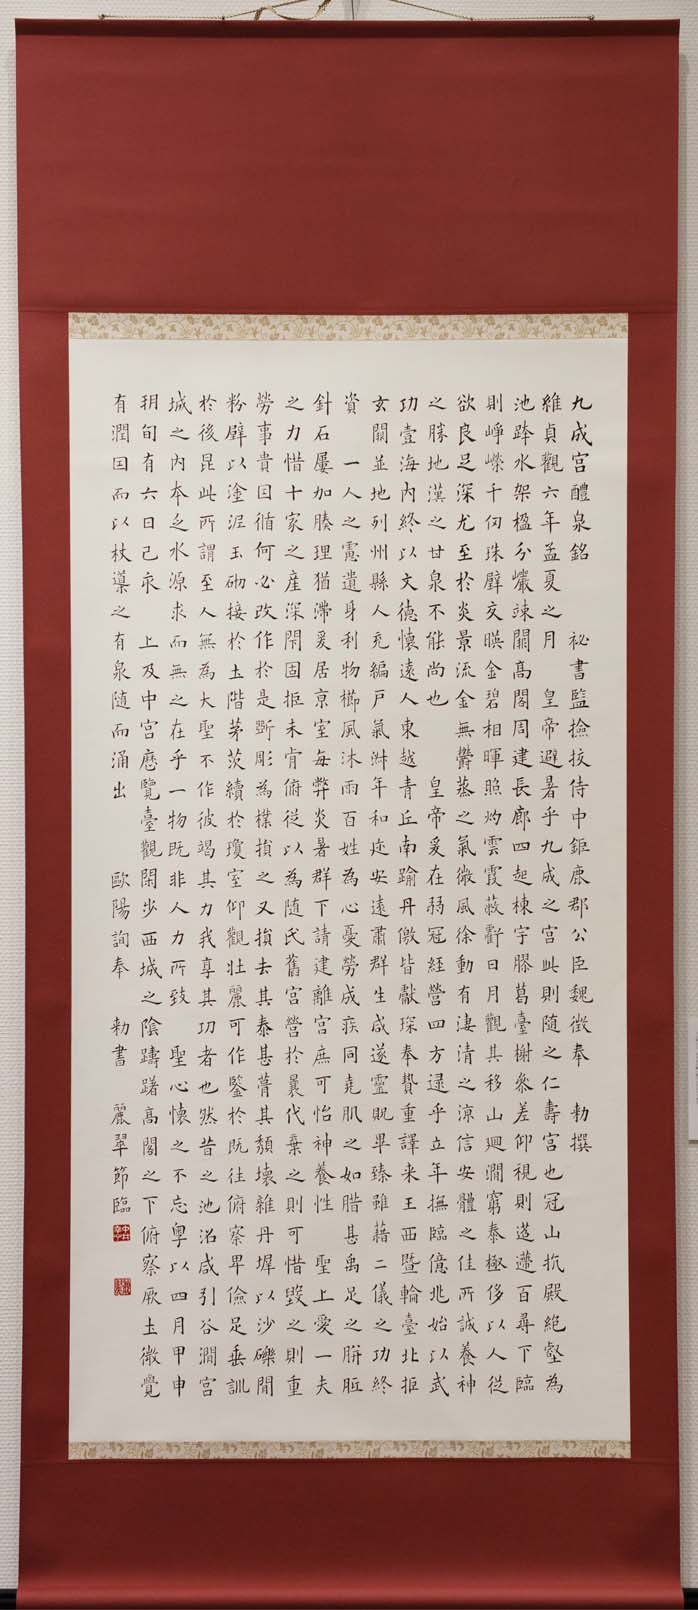 九成宮醴泉銘 祕書監撿挍侍中鉅鹿郡公臣魏徵奉 勅撰
維貞觀六年孟夏之月 皇帝避暑乎九成之宮此則随之仁壽宮也冠山抗殿絶壑為
池跨水架楹分巗竦闕高閣周建長廊四起棟宇膠葛臺榭參差仰視則迢遰百尋下臨
則崢嶸千仞珠璧交暎金碧相暉照灼雲霞蔽虧日月觀其移山迴澗窮泰極侈以人從
欲良足深尤至於炎景流金無欝蒸之氣微風徐動有淒清之涼信安體之佳所誠養神
之勝地漢之甘泉不能尚也 皇帝爰在弱冠經營四方逮乎立年撫臨億兆始以武
功壹海内終以文德懷遠人東越青丘南踰丹儌皆獻琛奉贄重譯来王西暨輪臺北拒
玄闕並地列州縣人充編戶氣淑年和迩安遠肅群生咸遂靈貺畢臻雖藉二儀之功終
資 一人之慮遺身利物櫛風沐雨百姓為心憂勞成疾同堯肌之如腊甚禹足之胼胝
針石屢加腠理猶滯爰居京室每弊炎暑群下請建離宮庶可怡神養性 聖上愛一夫
之力惜十家之產深閇固拒未肯俯從以為随氏舊宮營於曩代棄之則可惜毀之則重
勞事貴因循何必改作於是斲彫為樸損之又損去其泰甚葺其頹壞雜丹墀以沙礫間
粉壁以塗泥玉砌接於土階茅茨續於瓊室仰觀壯麗可作鑒於既往俯察卑儉足垂訓
於後昆此所謂至人無為大聖不作彼竭其力我享其功者也然昔之池沼咸引谷澗宮
城之内本乏水源求而無之在乎一物既非人力所致 聖心懷之不忘粤以四月甲申
朔旬有六日己亥 上及中宮歷覽臺觀閑步西城之陰躊躇高閣之下俯察厥土微覺
有潤因而以杖導之有泉随而涌出 歐陽詢奉 勅書 麗翠節臨